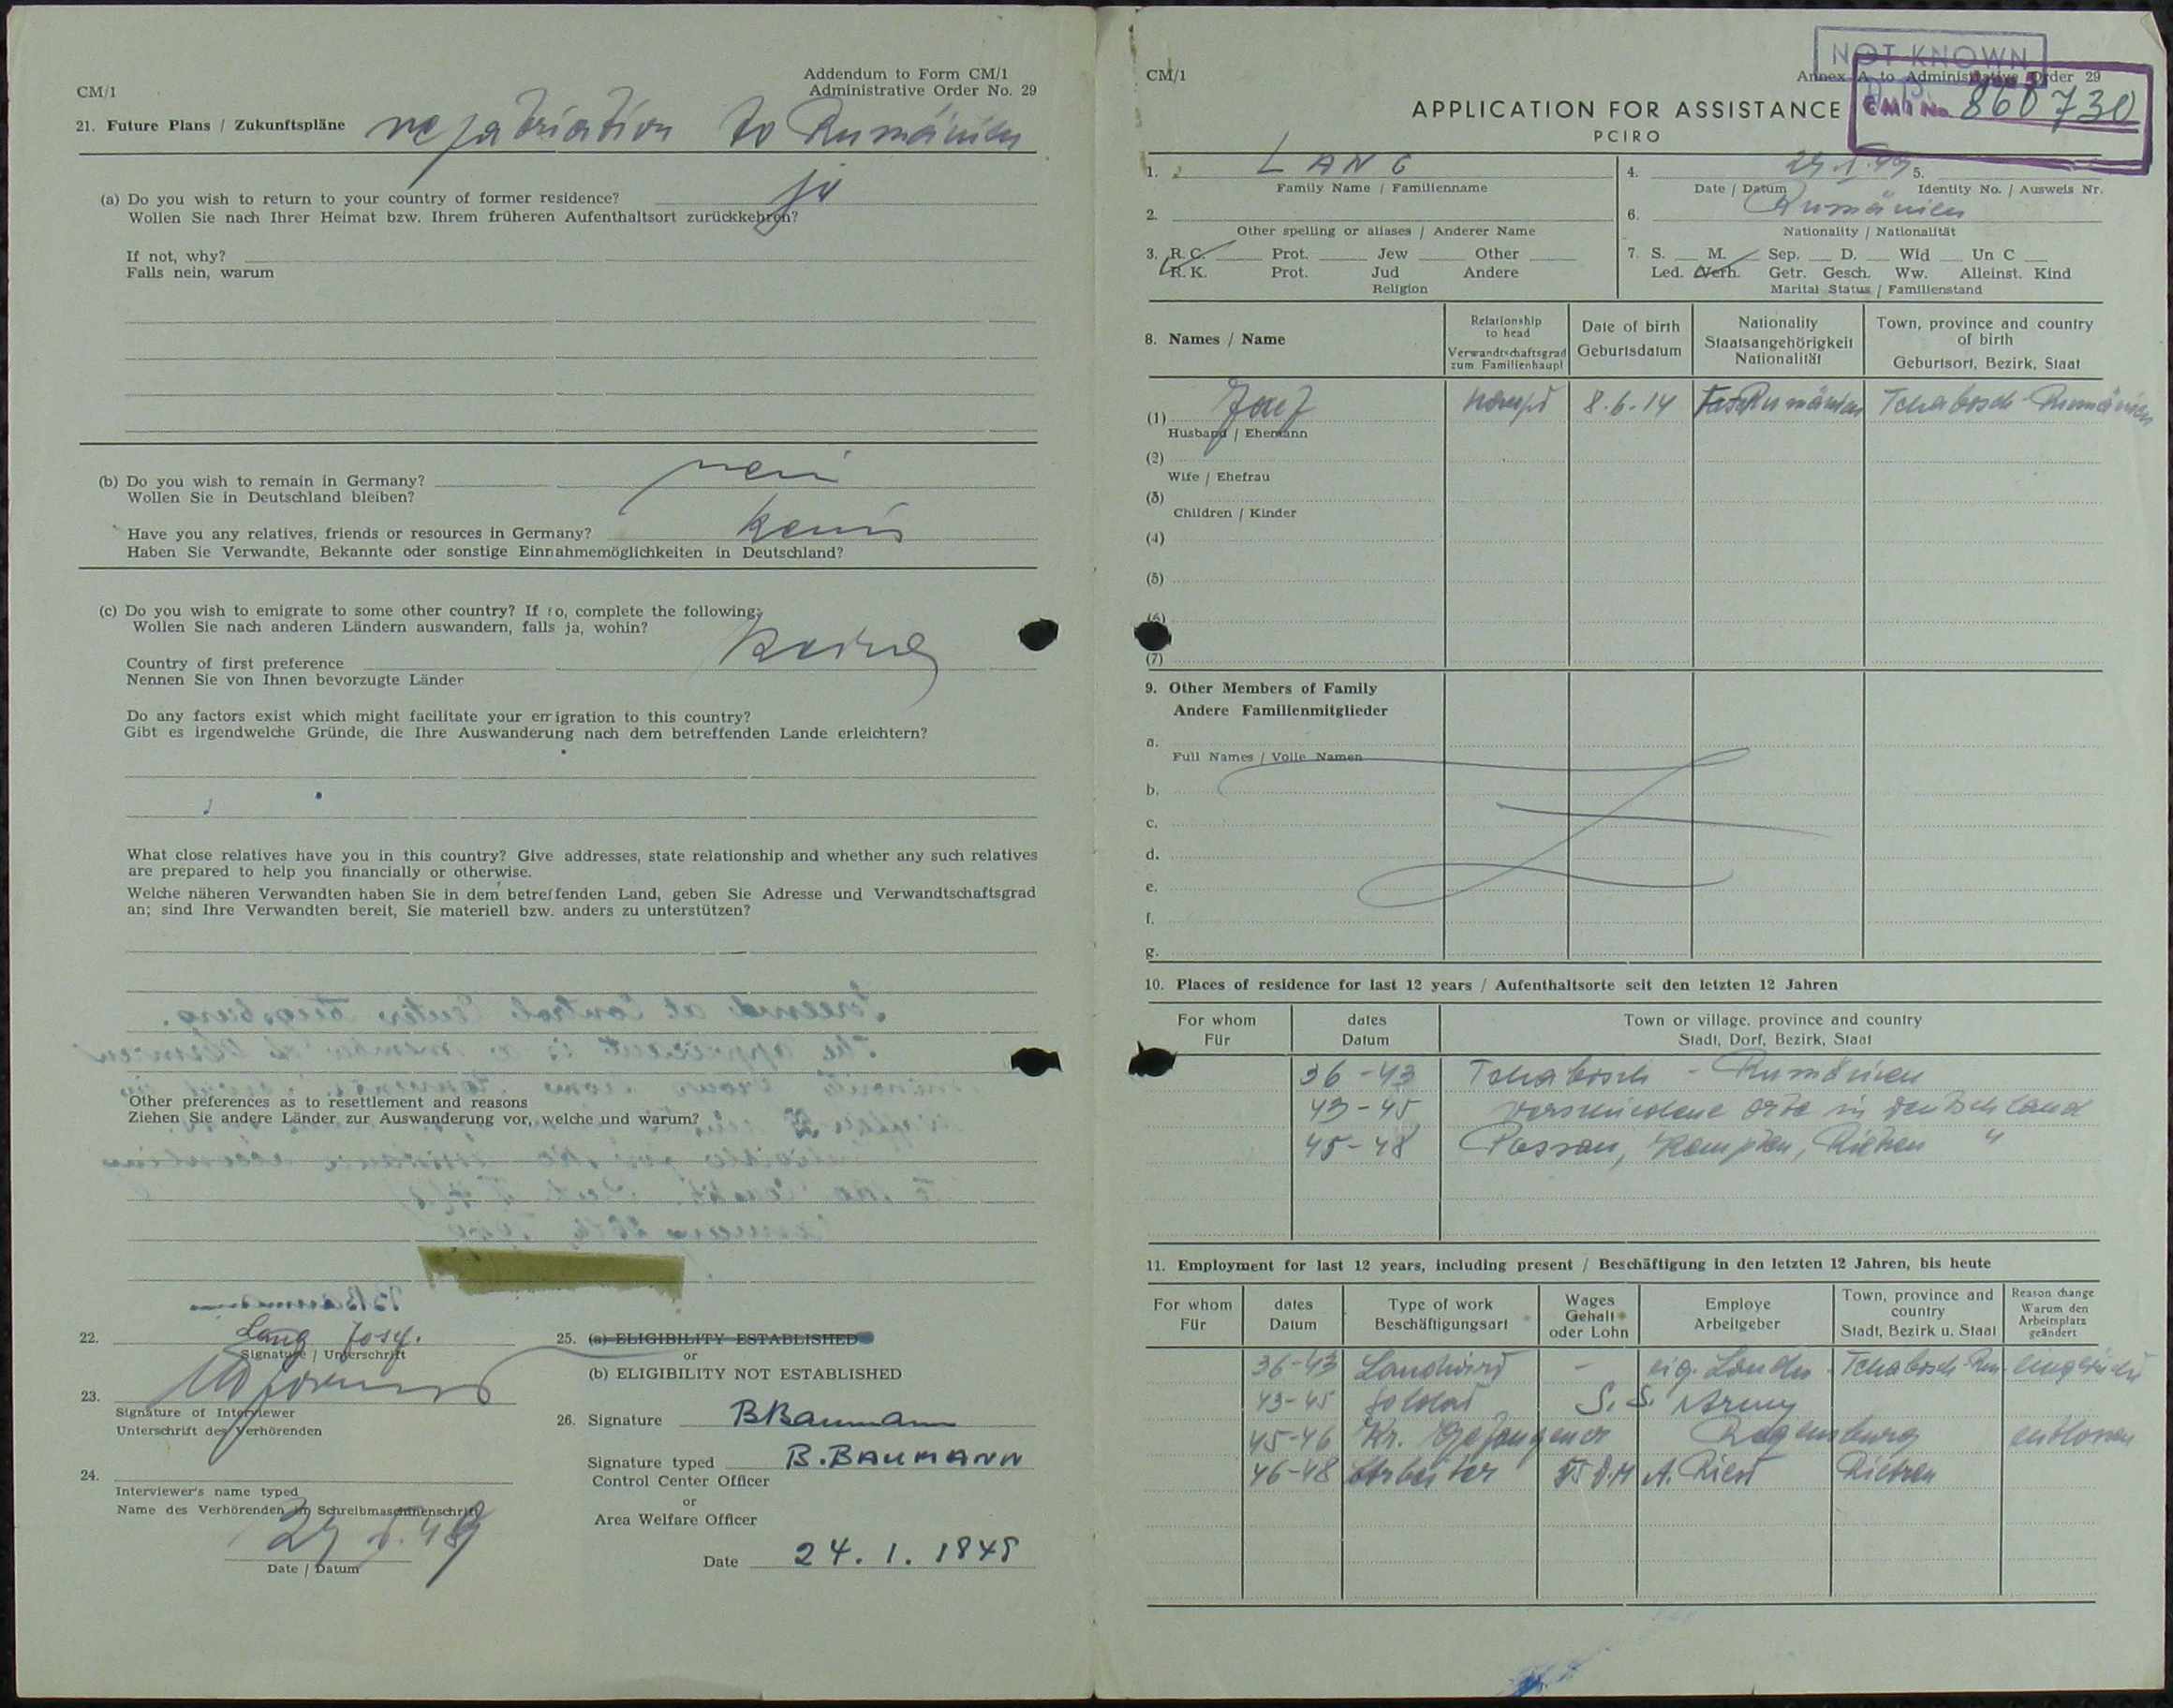 CM/1
Addendum to Form CM/1
Administrative Order No. 29
21. Future Plans / Zukunftspläne repatriation to Rumänien
(a) Do you wish to return to your country of former residence? ja
Wollen Sie nach Ihrer Heimat bzw. Ihrem früheren Aufenthaltsort zurückkehren?
If not, why?
Falls nein, warum
(b) Do you wish to remain in Germany? nein
Wollen Sie in Deutschland bleiben?
Have you any relatives, friends or resources in Germany? keine
Haben Sie Verwandte, Bekannte oder sonstige Einnahmemöglichkeiten in Deutschland?
(c) Do you wish to emigrate to some other country? If so, complete the following:
Wollen Sie nach anderen Ländern auswandern, falls ja, wohin?
Country of first preference keine
Nennen Sie von Ihnen bevorzugte Länder
Do any factors exist which might facilitate your emigration to this country?
Gibt es irgendwelche Gründe, die Ihre Auswanderung nach dem betreffenden Lande erleichtern?
What close relatives have you in this country? Give addresses, state relationship and whether any such relatives
are prepared to help you financially or otherwise.
Welche näheren Verwandten haben Sie in dem betreffenden Land, geben Sie Adresse und Verwandtschaftsgrad
an; sind Ihre Verwandten bereit, Sie materiell bzw. anders zu unterstützen?
Other preferences as to resettlement and reasons
Ziehen Sie andere Länder zur Auswanderung vor, welche und warum?
22. Lang Josef.
Signature / Unterschrift
23.
Signature of Interviewer
Unterschrift des Verhörenden
24.
Interviewer's name typed
Name des Verhörenden in Schreibmaschinenschrift
Date / Datum
25. (a) ELIGIBILITY ESTABLISHED
or
(b) ELIGIBILITY NOT ESTABLISHED
26. Signature BBaumann
Signature typed B. BAUMANN
Control Center Officer
or
Area Welfare Officer
Date 24. 1. 1848
CM/1
NOT KNOWN
Annex A to Administrative Order 29
CM/1 No. 860730
APPLICATION FOR ASSISTANCE
PCIRO
1. LANG
Family Name / Familienname
4.
Date / Datum
5.
Identity No. / Ausweis Nr.
2.
Other spelling or aliases / Anderer Name
6. Rumänien
Nationality / Nationalität
3. R. C. Prot. Jew Other
R. K. Prot. Jud Andere
Religion
7. S. M. Sep. D. Wid Un C
Led. Verh. Getr. Gesch. Ww. Alleinst. Kind
Marital Status / Familienstand
8. Names / Name
Relationship to head
Verwandtschaftsgrad zum Familienhaupt
Date of birth
Geburtsdatum
Nationality
Staatsangehörigkeit
Nationalität
Town, province and country of birth
Geburtsort, Bezirk, Staat
(1) Josef 8.6.14 Rumänien Tchabosch Rumänien
Husband / Ehemann
(2)
Wife / Ehefrau
(3)
Children / Kinder
(4)
(5)
(6)
(7)
9. Other Members of Family
Andere Familienmitglieder
a.
Full Names / Volle Namen
b.
c.
d.
e.
f.
g.
10. Places of residence for last 12 years / Aufenthaltsorte seit den letzten 12 Jahren
For whom
Für
dates
Datum
Town or village, province and country
Stadt, Dorf, Bezirk, Staat
36-43 Tchabosch - Rumänien
43-45 verschiedene Orte in Deutschland
45-48 Passau, Kempten, "
11. Employment for last 12 years, including present / Beschäftigung in den letzten 12 Jahren, bis heute
For whom
Für
dates
Datum
Type of work
Beschäftigungsart
Wages
Gehalt
oder Lohn
Employe
Arbeitgeber
Town, province and country
Stadt, Bezirk u. Staat
Reason change
Warum den Arbeitsplatz geändert
36-43 Landwirt - eig. Tchabosch Rum
43-45 Soldat S.S. Army
45-46 Kr. Gefangener Regensburg entlassen
46-48 Arbeiter